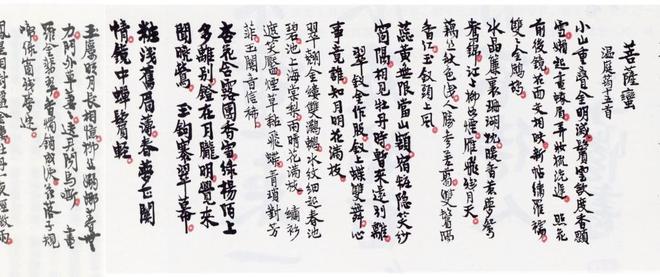 菩薩蠻
溫庭筠十五首
小山重疊金明滅鬢雲欲度香顋
雪嬾起畫蛾眉弄妝梳洗遲 照花
前後鏡花面交相映新帖繡羅襦
雙雙金鷓鴣
水晶簾裏珊瑚枕暖香惹夢鴛
鴦錦江上柳如煙雁飛殘月天
藕絲秋色淺人勝參差剪雙鬢隔
香紅玉釵頭上風
蕊黃無限當山額宿妝隱笑紗
窗隔相見牡丹時暫來還別離
翠釵金作股釵上蝶雙舞心
事竟誰知月明花滿枝
翠翹金縷雙鸂鶒水紋細起春池
碧池上海棠梨雨晴花滿枝 繡衫
遮笑靨煙草粘飛蝶青瑣對芳
菲玉關音信稀
杏花含露團香雪綠楊陌上
多離別燈在月朧明覺來
聞曉鶯 玉鉤褰翠幕
妝淺舊眉薄春夢正關
情鏡中蟬鬢輕
玉樓明月長相憶柳絲裊娜春無
力門外草萋萋送君聞馬嘶 畫
羅金翡翠香燭銷成淚花落子規
啼綠窗殘夢迷
鳳凰相對盤金縷牡丹一夜經微雨